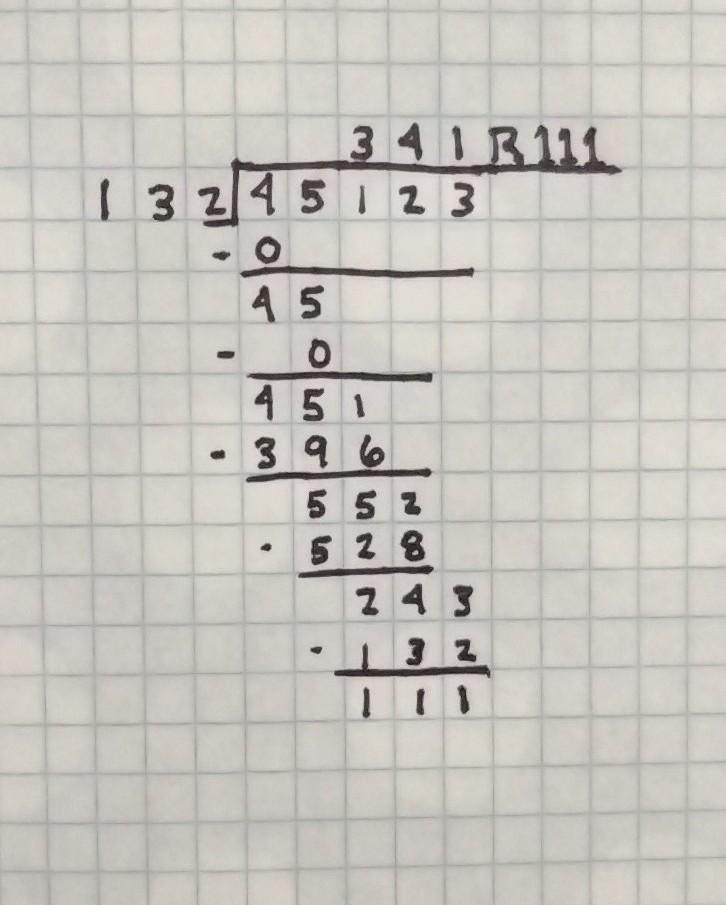 341 R111
132 45123
- 0
45
- 0
451
- 396
552
- 528
243
- 132
111